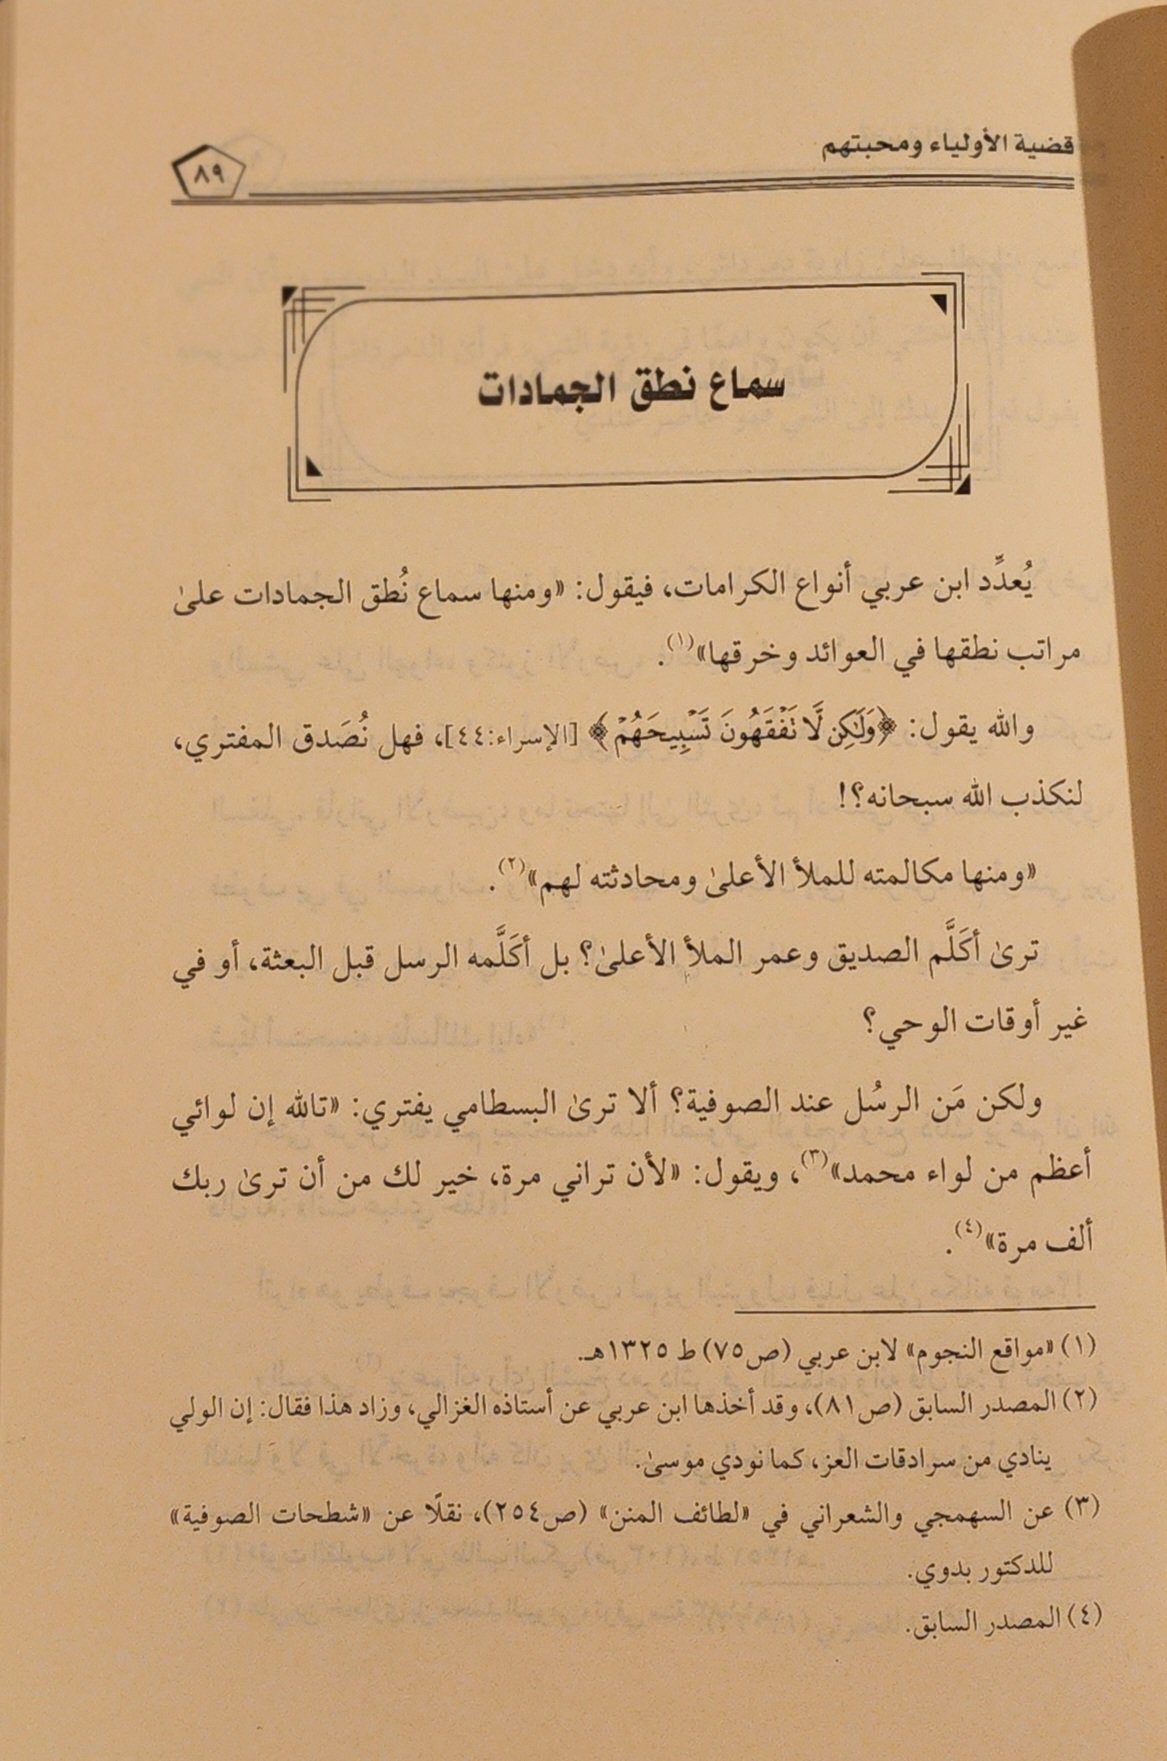 قضية الأولياء ومحبتهم
٨٩
سماع نطق الجمادات
يُعدِّد ابن عربي أنواع الكرامات، فيقول: «ومنها سماع نُطق الجمادات علىٰ
مراتب نطقها في العوائد وخرقها»(١).
والله يقول: ﴿وَلَٰكِن لَّا تَفْقَهُونَ تَسْبِيحَهُمْ﴾ [الإسراء:٤٤]، فهل نُصَدق المفتري،
لنكذب الله سبحانه؟!
«ومنها مكالمته للملأ الأعلىٰ ومحادثته لهم»(٢).
ترىٰ أكَلَّم الصديق وعمر الملأ الأعلىٰ؟ بل أكَلَّمه الرسل قبل البعثة، أو في
غير أوقات الوحي؟
ولكن مَن الرسُل عند الصوفية؟ ألا ترىٰ البسطامي يفتري: «تالله إن لوائي
أعظم من لواء محمد»(٣)، ويقول: «لأن تراني مرة، خير لك من أن ترىٰ ربك
ألف مرة»(٤).
(١) «مواقع النجوم» لابن عربي (ص٧٥) ط ١٣٢٥هـ.
(٢) المصدر السابق (ص٨١)، وقد أخذها ابن عربي عن أستاذه الغزالي، وزاد هذا فقال: إن الولي
ينادي من سرادقات العز، كما نودي موسىٰ.
(٣) عن السهمجي والشعراني في «لطائف المنن» (ص٢٥٤)، نقلًا عن «شطحات الصوفية»
للدكتور بدوي.
(٤) المصدر السابق.